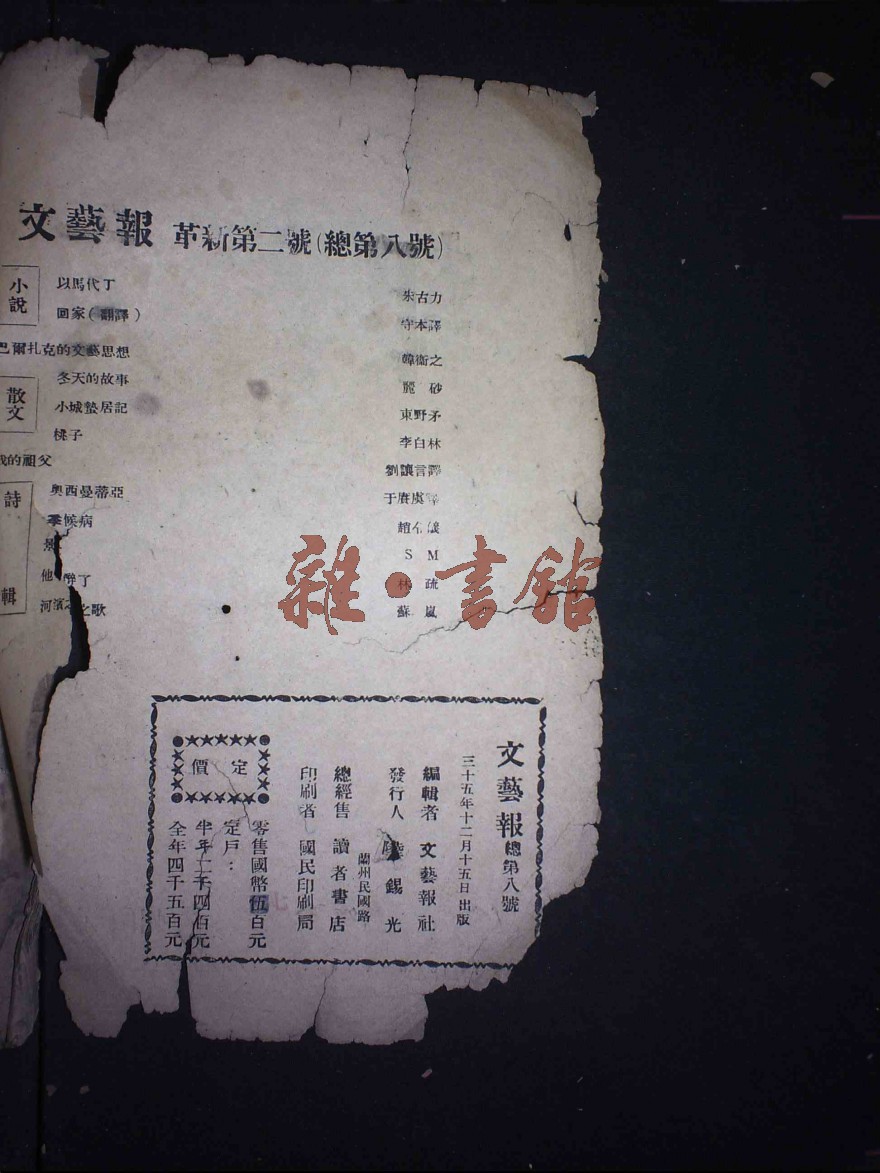 文藝報 革新第二號(總第八號)
小說
以馬代丁 朱古力
回家(翻譯) 守本譯
巴爾扎克的文藝思想 韓衛之
散文
冬天的故事 麗砂
小城蟄居記 東野矛
桃子 李白林
我的祖父 劉讓言譯
詩輯
奧西曼蒂亞 于賡虞譯
季候病 趙
景 S M
他 醉了 林疏
河濱 之歌 蘇嵐
雜·書館
文藝報 總第八號
三十五年十二月十五日出版
編輯者 文藝報社
發行人 錫光
蘭州民國路
總經售 讀者書店
印刷者 國民印刷局
定價
零售國幣伍百元
定戶:
半年二千四佰元
全年四千五百元